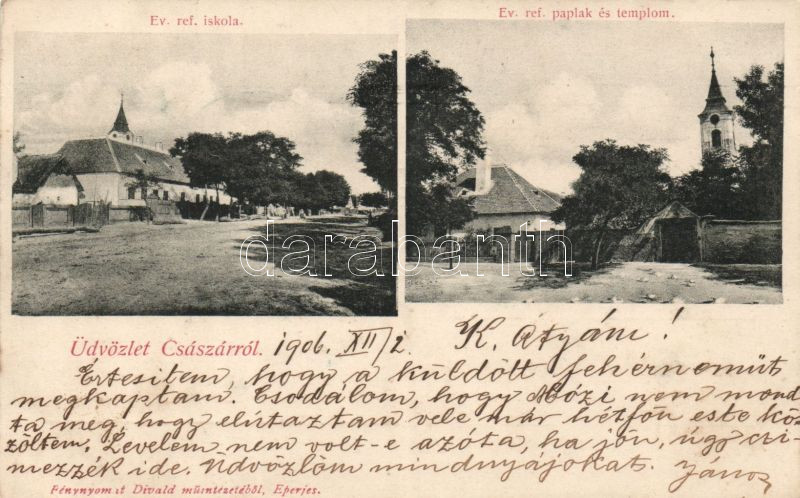 Ev. ref. iskola.
Ev. ref. paplak és templom.
darabanth
Üdvözlet Császárról. 1906. XII/2.
K. Atyám!
Értesitem, hogy a küldött fehérneműt
megkaptam. Csodálom, hogy Mózi nem mond
ta meg, hogy elútaztam vele már hétfőn este kö
zöltem. Levelem nem volt-e azóta, ha jön, úgy czi-
mezzék ide. Üdvözlöm mindnyájokat. János
Fénynyomat Divald műintézetéből, Eperjes.